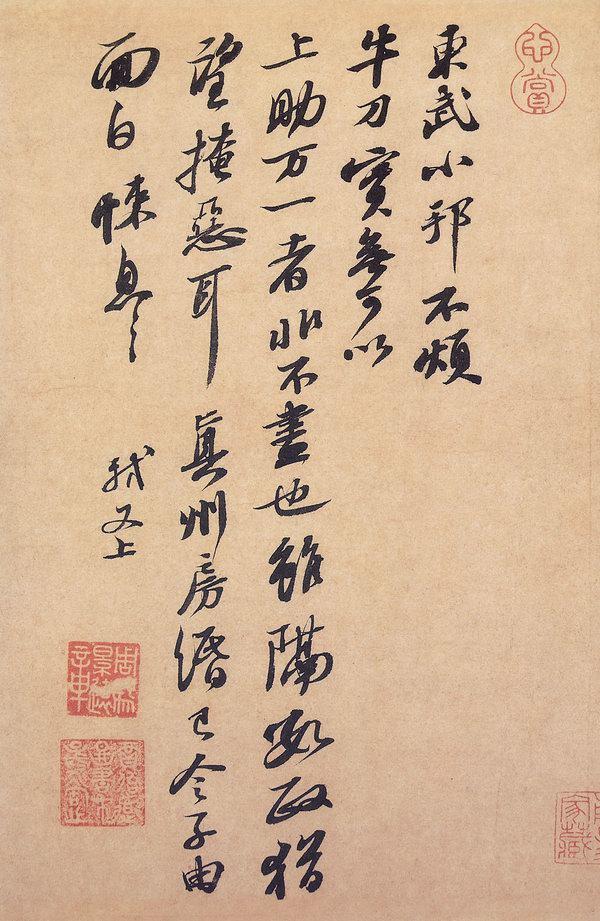 心賞
東武小邦不煩
牛刀實無可以
上助万一者非不盡也雖隔數政猶
望掩惡耳眞州房緡已令子由
面白悚息〻
軾又上
家藏